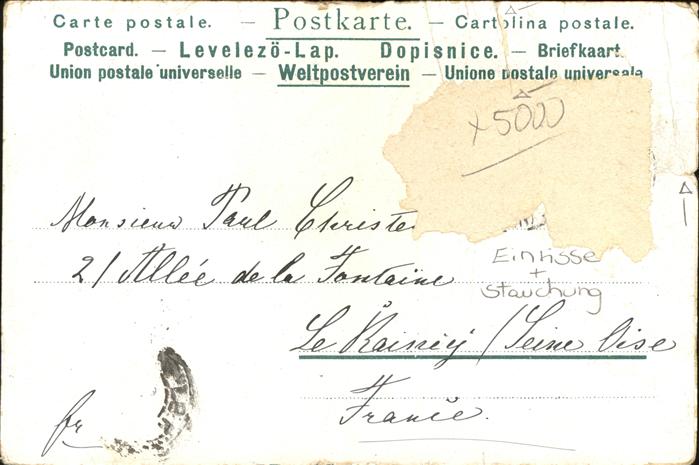 Carte postale. — Postkarte. — Cartolina postale.
Postcard. — Levelezö-Lap. Dopisnice. — Briefkaart.
Union postale universelle — Weltpostverein — Unione postale universale
x5000
Monsieur Paul Christe
21 Allée de la Fontaine
Einrisse
+
Stauchung
Le Rainçy / Seine Oise
France.
fr